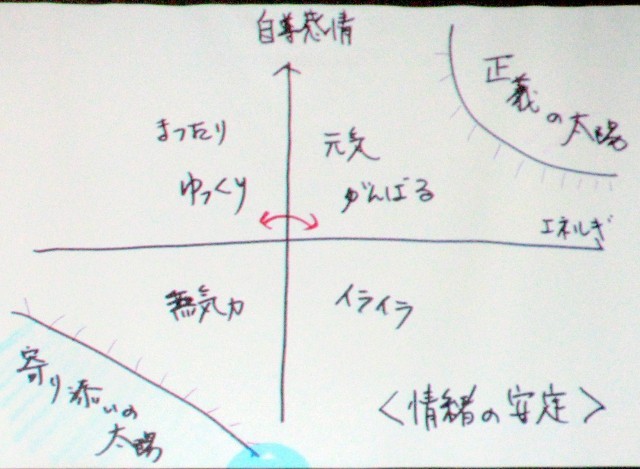 自尊感情
正義の太陽
まったり
元気
ゆっくり
がんばる
エネルギ
無気力
イライラ
寄り添いの
太陽
<情緒の安定>